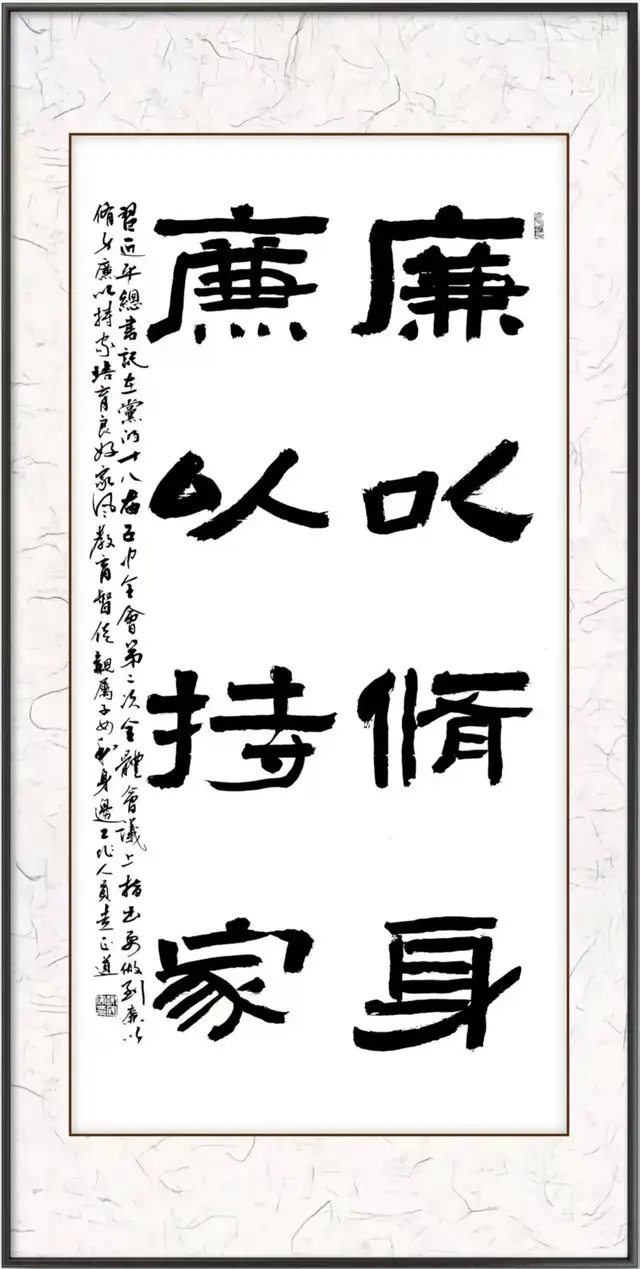 廉以脩身
廉以持家
習近平總書記在黨的十八屆五中全會第二次全體會議上指出要做到廉以
脩身廉以持家培育良好家風教育督促親屬子女和身邊工作人員走正道